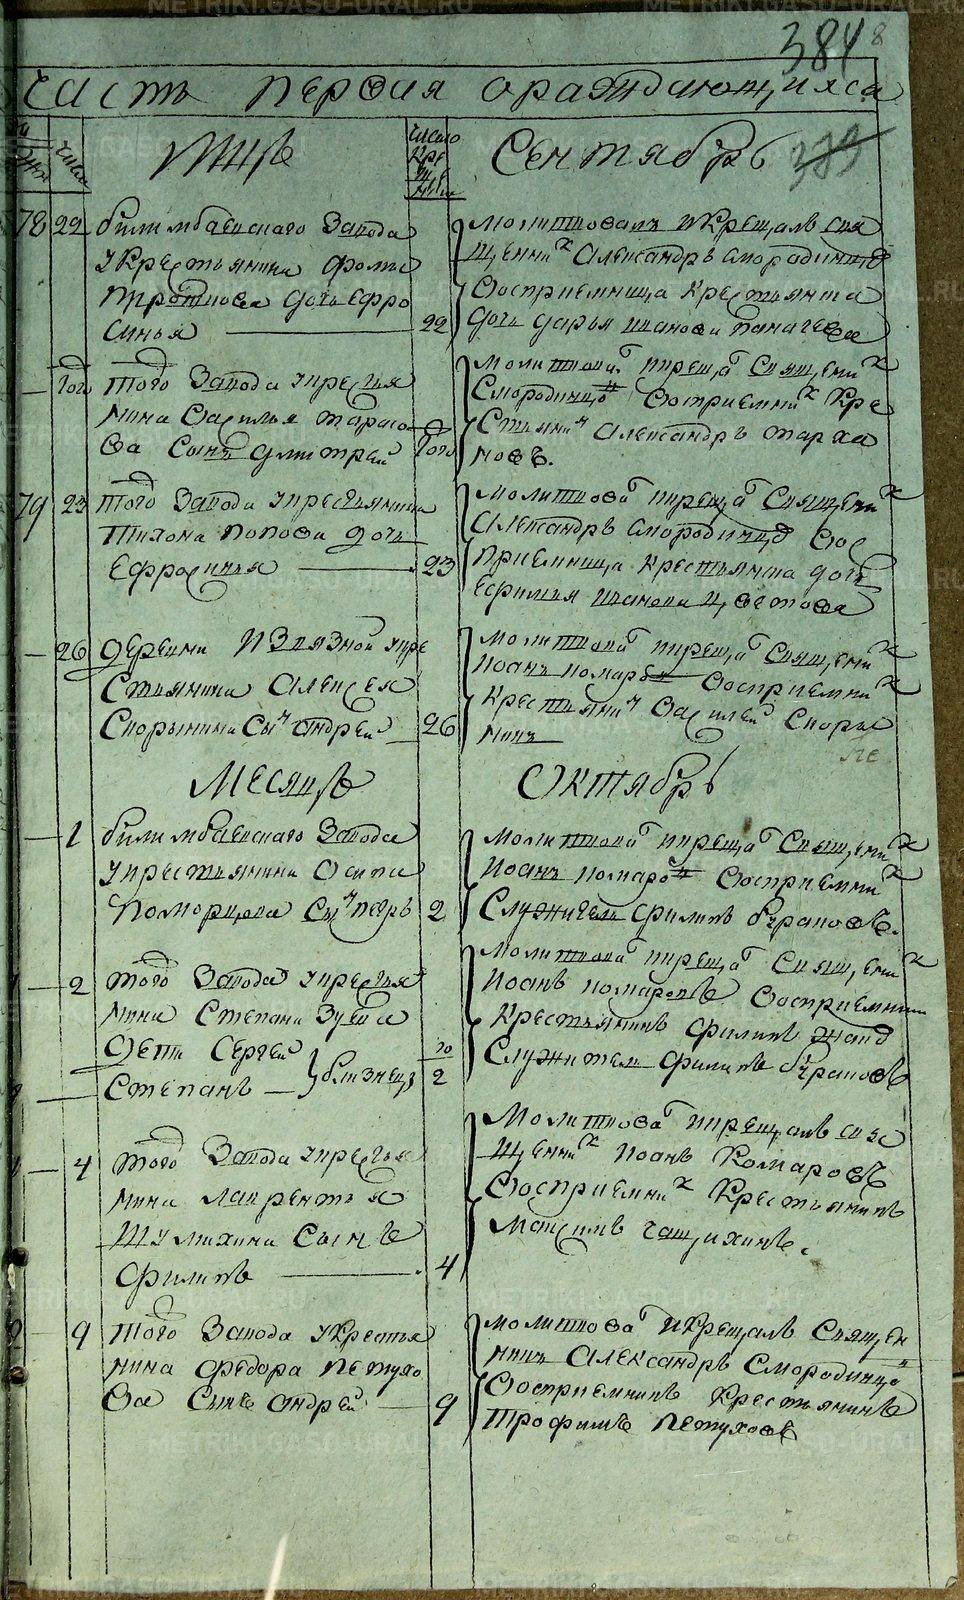 384
8
Часть первая ораждающихся
Число
Мцъ
число
кре
ще
нiи
Сентябрь
389
78 22 билимбаевскаго Завода
укрестьянина Фомы
дочь Ефро
синья 22
молитвовалъ и крещалъ свя
щенникъ Александръ Смородинцо
восприемница крестьянина
дочь дарья иванова
того того Завода укрестья
нина василья тарасо
ва Сынъ димитрей того
молитвова икреща Священик
Смородинцо восприемник кре
стьянин Александръ тарха
новъ.
79 23 того Завода укрестьянина
Тихона попова дочь
Ефросинья 23
молитвова икреща Священик
Александръ Смородинцо вос
приемница крестьянина дочь
Ефимья иванова цветова
26 деревни Извязной укре
стьянина Алексея
Скорынина Сын андрей 26
молитвова икреща Священик
Иоанъ комаров восприемник
крестянин василей Скоры
нинъ
Месяцъ Октябрь
1 билимбаевскаго Завода
укрестьянина Осипа
Поморцова Сын петръ 2
молитвова икреща Священик
Иоанъ комаров восприемник
Служитель филипъ бурановъ.
2 того Завода укрестья
нина Степана Зуева
дети Сергей
Степанъ близнецы 2
молитвова икреща Священик
Иоанъ комаровъ восприемники
крестьянинъ филипъ
Служитель филипъ бурановъ
4 того Завода укрестья
нина лаврентья
Шумихина Сынъ
филипъ 4
Молитвова икрещалъ свя
щенник Иоанъ Комаровъ
восприемник крестьянинъ
Максимъ чащихинъ.
9 9 того Завода укрестья
нина федора петухо
ва Сынъ андрей 9
молитвова икрещалъ Священ
никъ Александръ Смородинцо
восприемникъ крестьянинъ
трофимъ петуховъ
METRIKI.GASO-URAL.RU